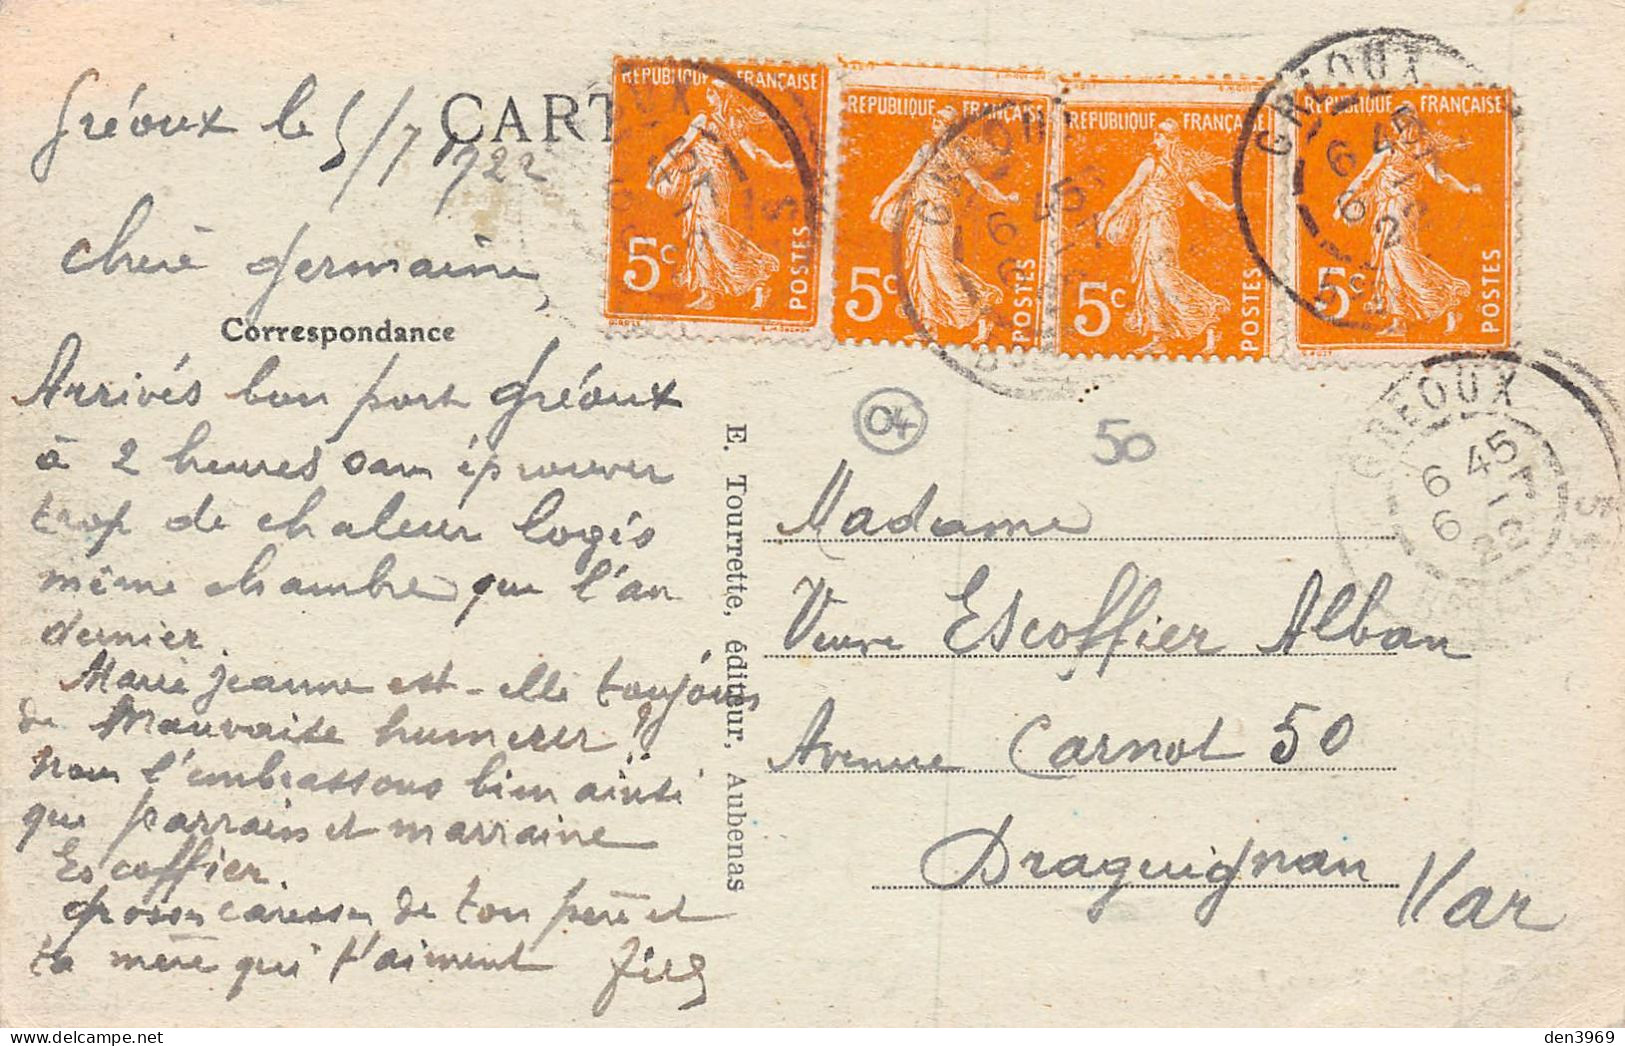 Gréoux le 5/7 1922
CART
chère Germaine,
Correspondance
Arrivés bon port Gréoux
à 2 heures sans éprouver
trop de chaleur logés
même chambre que l'an
dernier.
Marie Jeanne est-elle toujours
de mauvaise humeur?
nous l'embrassons bien ainsi
que parrain et marraine
Escoffier.
Grosses caresses de ton père et
ta mère qui t'aiment
E. Tourrette, éditeur, Aubenas
REPUBLIQUE FRANÇAISE
5c
POSTES
REPUBLIQUE FRANÇAISE
5c
POSTES
REPUBLIQUE FRANÇAISE
5c
POSTES
REPUBLIQUE FRANÇAISE
5c
POSTES
GREOUX
6 45
6 7
22
GREOUX
6 45
6 7
22
04
50
Madame
Veuve Escoffier Alban
Avenue Carnot 50
Draguignan
Var
den3969